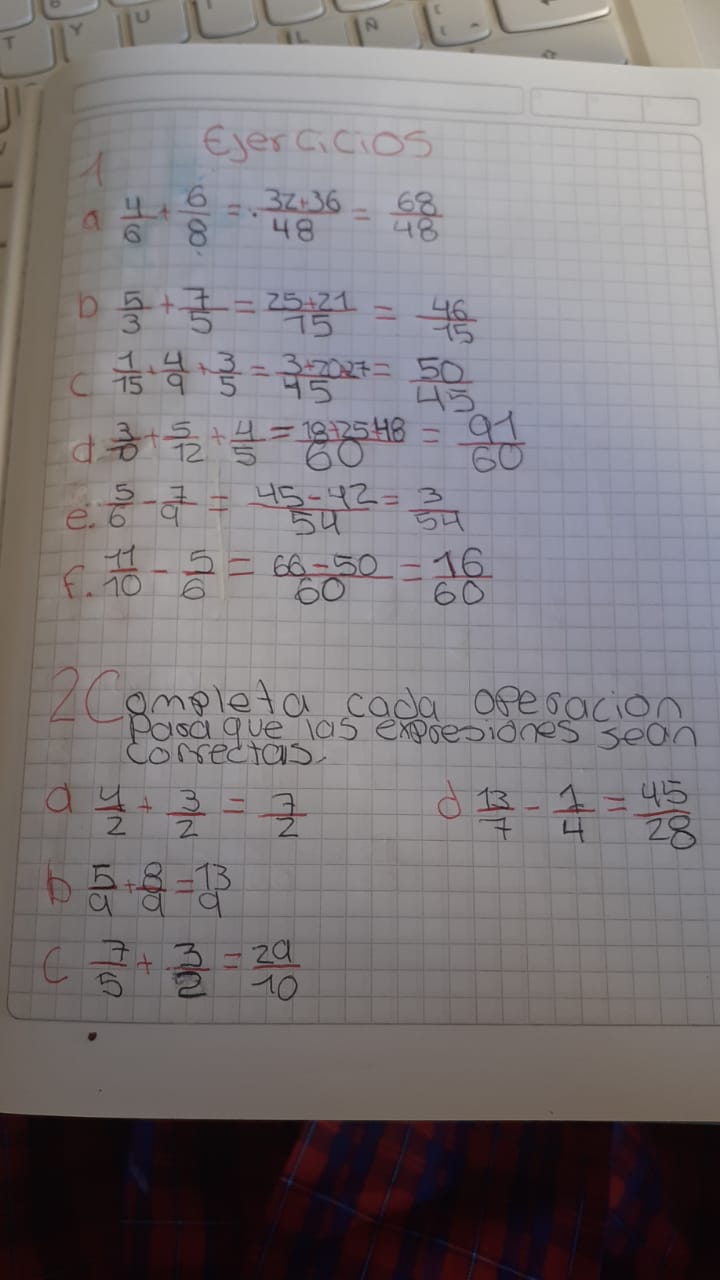 Ejercicios
1
a 4/6 + 6/8 = 32+36/48 = 68/48
b 5/3 + 7/5 = 25+21/15 = 46/15
c 1/15 + 4/9 + 3/5 = 3+2027/45 = 50/45
d. 3/10 + 5/12 + 4/5 = 18+25+48/60 = 91/60
e. 5/6 - 7/9 = 45-42/54 = 3/54
f. 11/10 - 5/6 = 66-50/60 = 16/60
2 Completa cada operacion
para que las expresiones sean
correctas.
a 4/2 + 3/2 = 7/2
d 13/7 - 1/4 = 45/28
b 5/9 + 8/9 = 13/9
c 7/5 + 3/2 = 29/10
T Y U I L Ñ